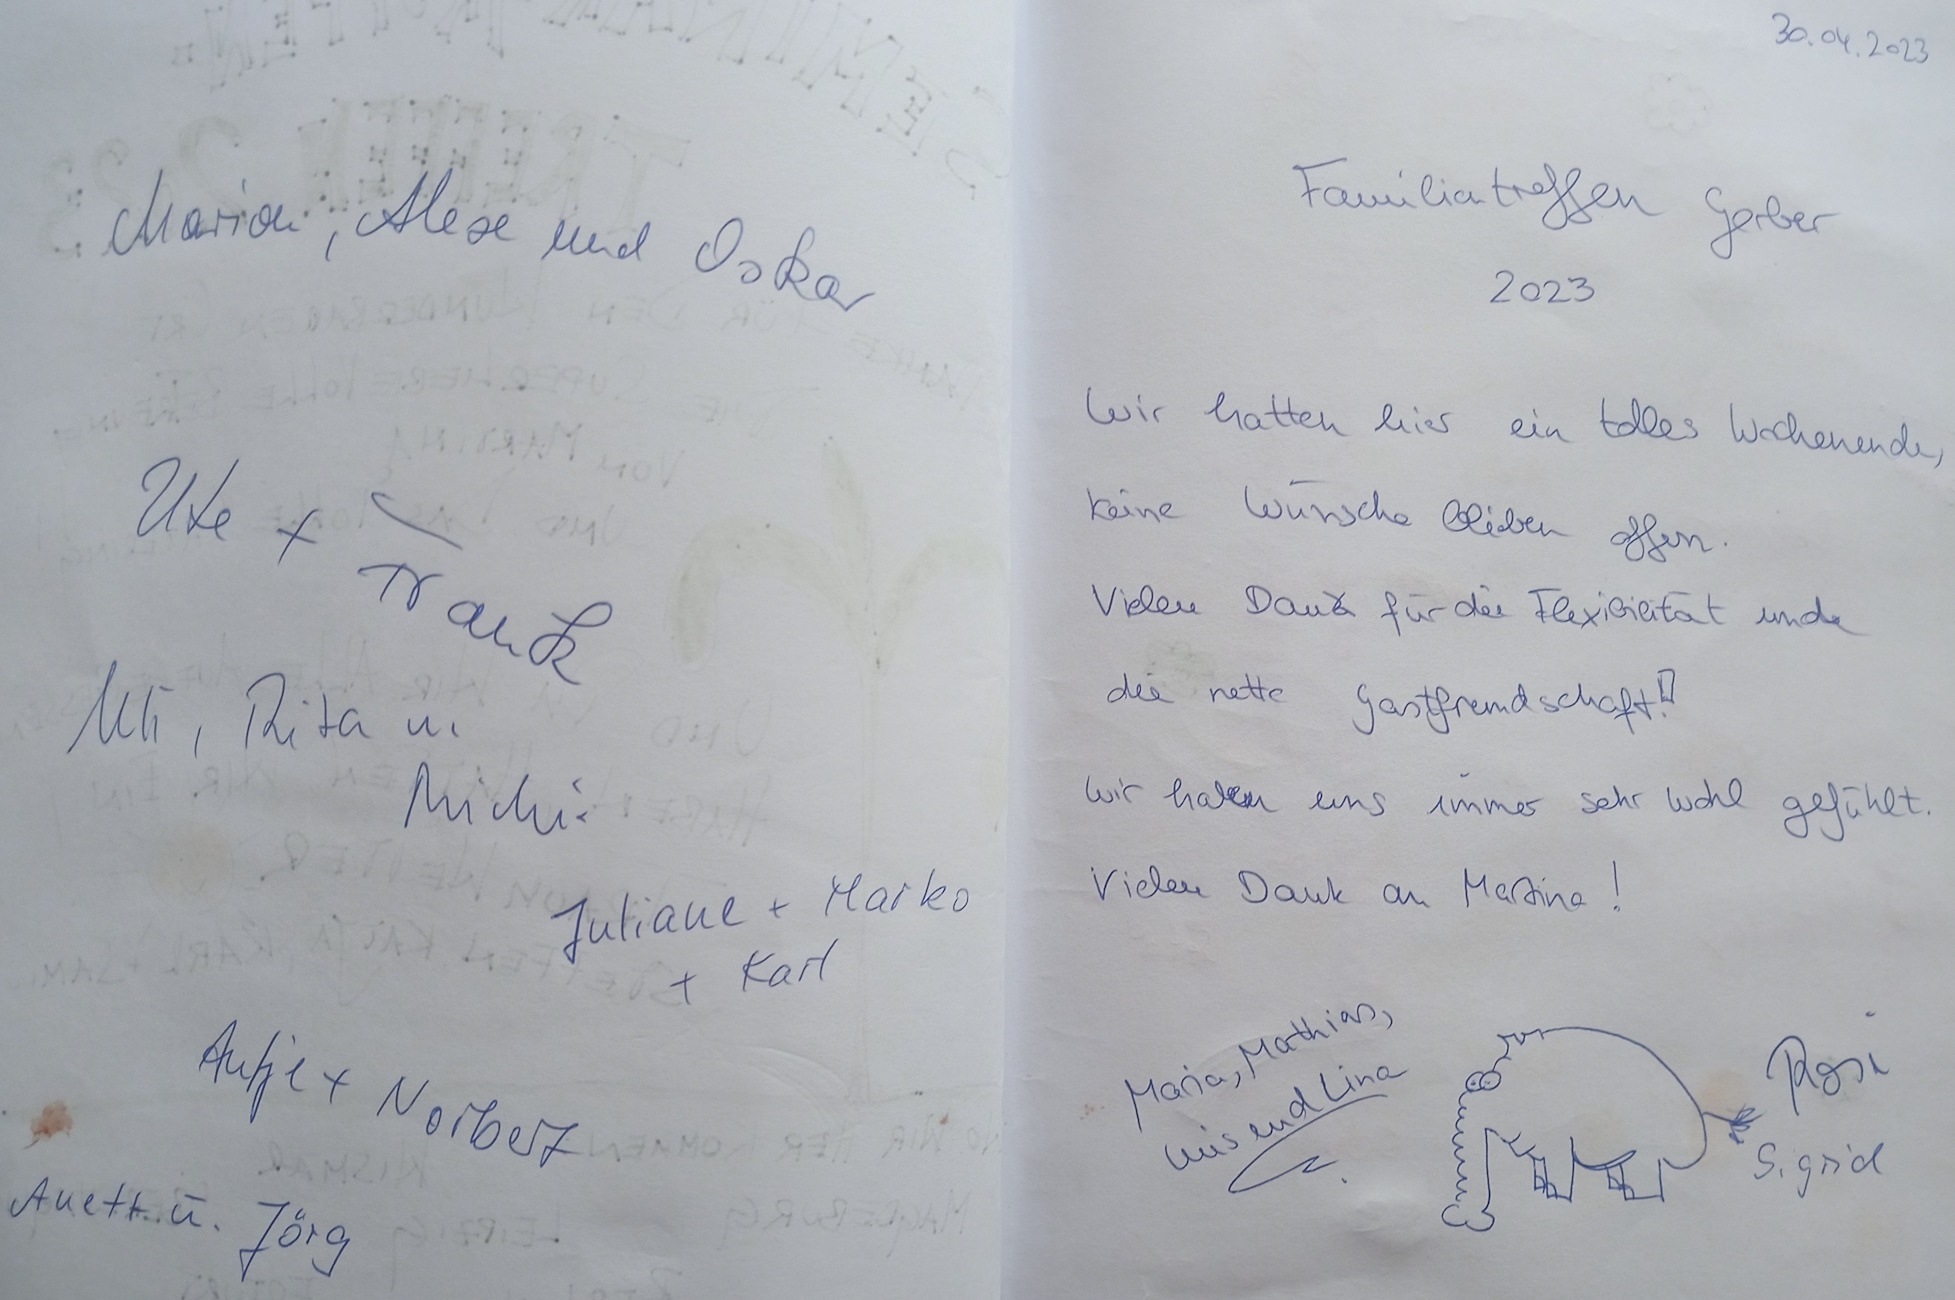 Marion, Alexe und Oskar
Ute + Frank
Uli, Rita u.
Michi
Juliane + Marko
+ Karl
Antje + Norbert
Anett u. Jörg
30.04.2023
Familientreffen Gerber
2023
Wir hatten hier ein tolles Wochenende,
keine Wünsche blieben offen.
Vielen Dank für die Flexibilität und
die nette Gastfreundschaft!
Wir haben uns immer sehr wohl gefühlt.
Vielen Dank an Martina!
Maria, Mathias,
und Lina
Rosi
Sigrid